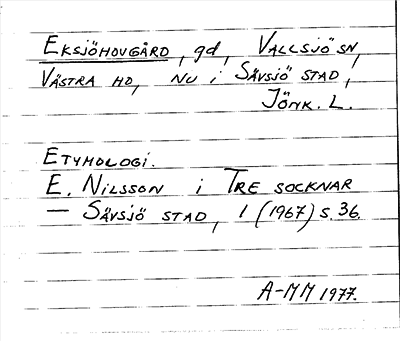 EKSJÖHOVGÅRD, gd, VALLSJÖ SN,
VÄSTRA HD, NU i SÄVSJÖ STAD,
JÖNK. L.
ETYMOLOGI.
E. NILSSON i TRE SOCKNAR
— SÄVSJÖ STAD, 1 (1967) s. 36.
A-MM 1977.